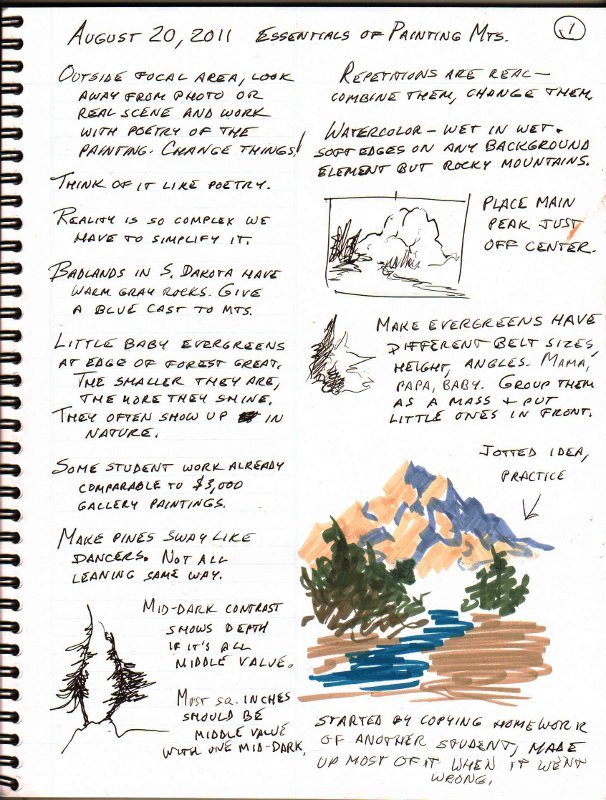 AUGUST 20, 2011 ESSENTIALS OF PAINTING MTS.
1
OUTSIDE FOCAL AREA, LOOK
AWAY FROM PHOTO OR
REAL SCENE AND WORK
WITH POETRY OF THE
PAINTING. CHANGE THINGS!
THINK OF IT LIKE POETRY.
REALITY IS SO COMPLEX WE
HAVE TO SIMPLIFY IT.
BADLANDS IN S. DAKOTA HAVE
WARM GRAY ROCKS. GIVE
A BLUE CAST TO MTS.
LITTLE BABY EVERGREENS
AT EDGE OF FOREST GREAT.
THE SMALLER THEY ARE,
THE MORE THEY SHINE.
THEY OFTEN SHOW UP IN
NATURE.
SOME STUDENT WORK ALREADY
COMPARABLE TO $3,000
GALLERY PAINTINGS.
MAKE PINES SWAY LIKE
DANCERS. NOT ALL
LEANING SAME WAY.
MID-DARK CONTRAST
SHOWS DEPTH
IF IT'S ALL
MIDDLE VALUE.
MOST SQ. INCHES
SHOULD BE
MIDDLE VALUE
WITH ONE MID-DARK.
REPETITIONS ARE REAL—
COMBINE THEM, CHANGE THEM.
WATERCOLOR — WET IN WET +
SOFT EDGES ON ANY BACKGROUND
ELEMENT BUT ROCKY MOUNTAINS.
PLACE MAIN
PEAK JUST
OFF CENTER.
MAKE EVERGREENS HAVE
DIFFERENT BELT SIZES,
HEIGHT, ANGLES. MAMA,
PAPA, BABY. GROUP THEM
AS A MASS + PUT
LITTLE ONES IN FRONT.
JOTTED IDEA,
PRACTICE
STARTED BY COPYING HOMEWORK
OF ANOTHER STUDENT, MADE
UP MOST OF IT WHEN IT WENT
WRONG.